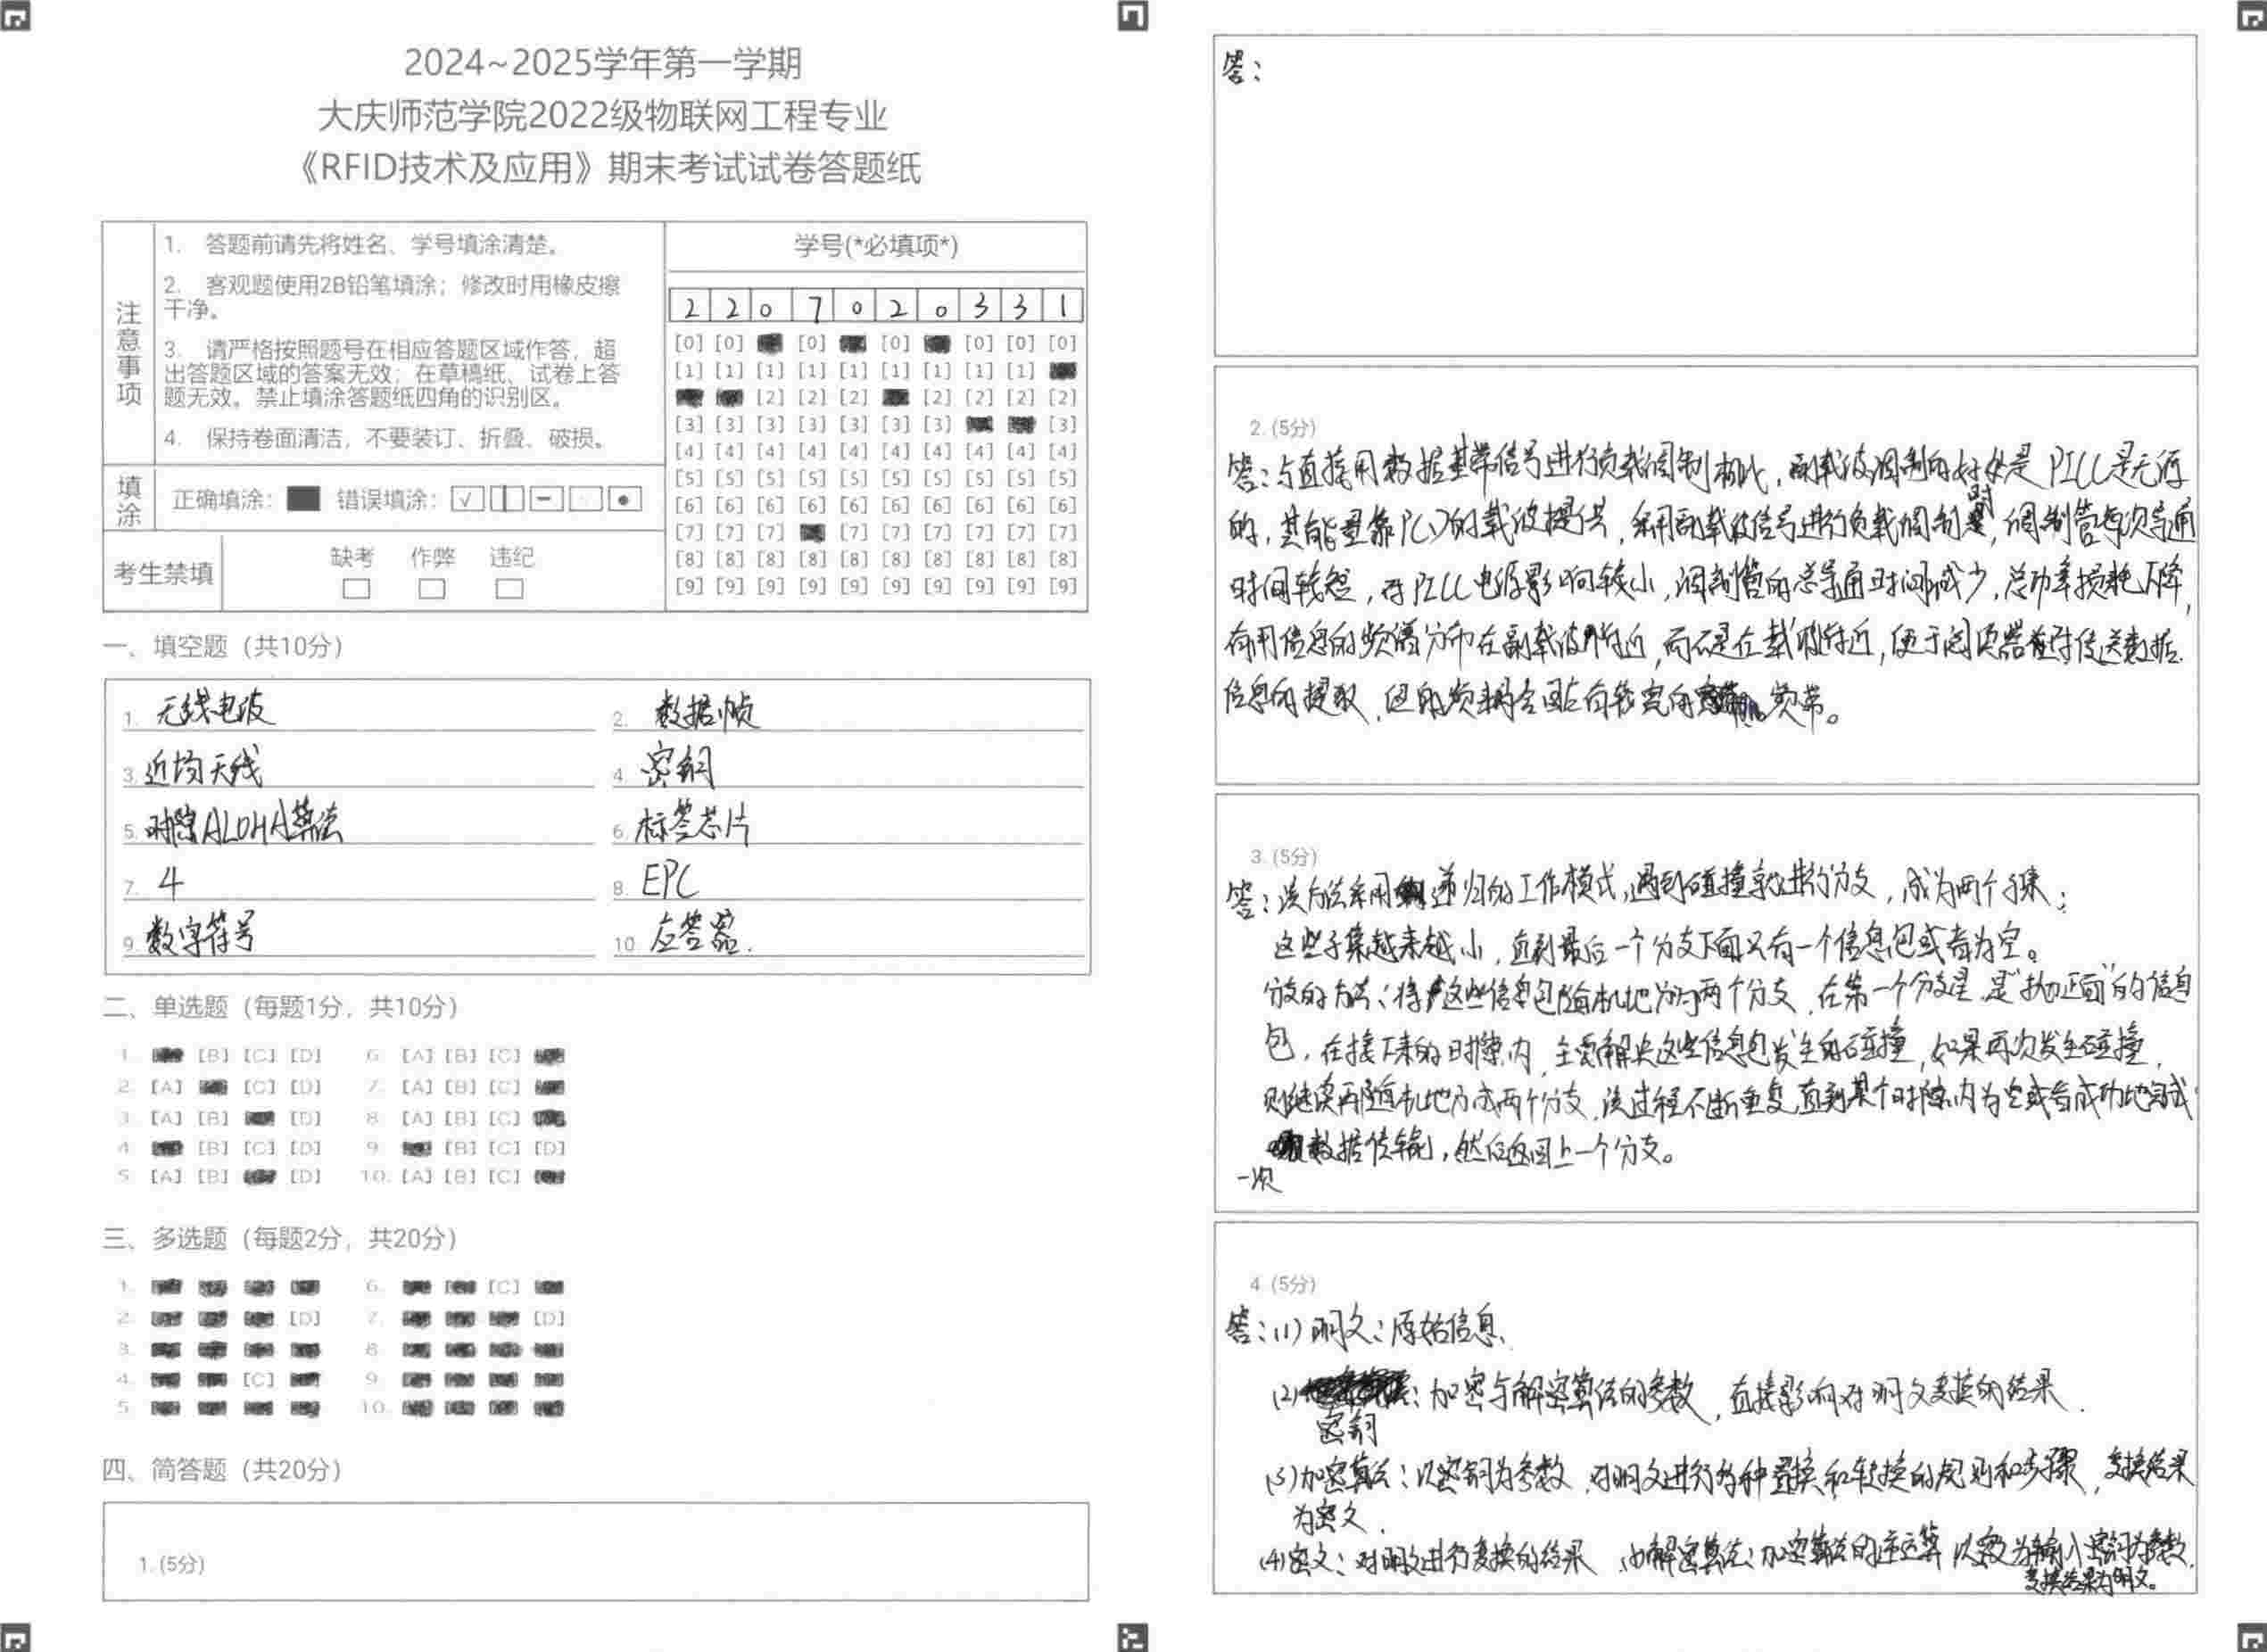 2024~2025学年第一学期
大庆师范学院2022级物联网工程专业
《RFID技术及应用》期末考试试卷答题纸
注意事项
1. 答题前请先将姓名、学号填涂清楚。
2. 客观题使用2B铅笔填涂；修改时用橡皮擦
干净。
3. 请严格按照题号在相应答题区域作答，超
出答题区域的答案无效；在草稿纸、试卷上答
题无效。禁止填涂答题纸四角的识别区。
4. 保持卷面清洁，不要装订、折叠、破损。
填涂
正确填涂： 错误填涂：
考生禁填
缺考 作弊 违纪
学号(*必填项*)
2 2 0 7 0 2 0 3 3 1
[0] [0] [0] [0] [0] [0] [0]
[1] [1] [1] [1] [1] [1] [1] [1] [1]
[2] [2] [2] [2] [2] [2] [2]
[3] [3] [3] [3] [3] [3] [3] [3]
[4] [4] [4] [4] [4] [4] [4] [4] [4] [4]
[5] [5] [5] [5] [5] [5] [5] [5] [5] [5]
[6] [6] [6] [6] [6] [6] [6] [6] [6] [6]
[7] [7] [7] [7] [7] [7] [7] [7] [7]
[8] [8] [8] [8] [8] [8] [8] [8] [8] [8]
[9] [9] [9] [9] [9] [9] [9] [9] [9] [9]
一、填空题（共10分）
1. 无线电波 2. 数据帧
3. 近场天线 4. 密钥
5. 时隙ALOHA算法 6. 标签芯片
7. 4 8. EPC
9. 数字符号 10. 应答器.
二、单选题（每题1分，共10分）
1. [B] [C] [D] 6. [A] [B] [C]
2. [A] [C] [D] 7. [A] [B] [C]
3. [A] [B] [D] 8. [A] [B] [C]
4. [B] [C] [D] 9. [B] [C] [D]
5. [A] [B] [D] 10. [A] [B] [C]
三、多选题（每题2分，共20分）
1. 6. [C]
2. [D] 7. [D]
3. 8.
4. [C] 9.
5. 10.
四、简答题（共20分）
1. (5分)
答：
2. (5分)
答：与直接用数据基带信号进行负载调制相比，副载波调制的好处是PICC是无源
的，其能量靠PCD的载波提供，采用副载波信号进行负载调制时，调制管每次导通
时间较短，对PICC电源影响较小，调制管的总导通时间减少，总功率损耗下降，
有用信息的频谱分布在副载波附近，而不是在载波附近，便于阅读器对传送数据
信息的提取，但射频耦合回路有较宽的频带。
3. (5分)
答：该方法采用递归的工作模式，遇到碰撞就进行分支，成为两个子集；
这些子集越来越小，直到最后一个分支下面只有一个信息包或者为空。
分支的方法：将这些信息包随机地分为两个分支，在第一个分支里，是“抛正面”的信息
包，在接下来的时隙内，主要解决这些信息包发生的碰撞，如果再次发生碰撞，
则继续再随机地分成两个分支，该过程不断重复，直到某个时隙内为空或者成功地完成
一次数据传输，然后返回上一个分支。
4. (5分)
答：(1)明文：原始信息.
(2)密钥：加密与解密算法的参数，直接影响对明文变换的结果.
(3)加密算法：以密钥为参数，对明文进行多种置换和转换的规则和步骤，变换结果
为密文.
(4)密文：对明文进行变换的结果 (5)解密算法：加密算法的逆运算 以密文为输入 密钥为参数，
变换结果为明文。